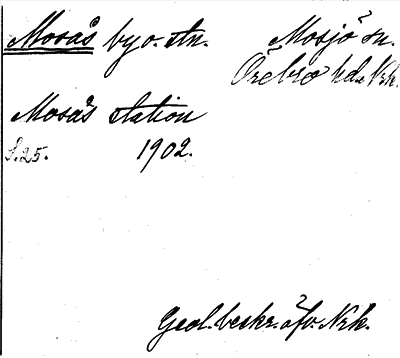 Mosås by o. stn. Mosjö sn.
Örebro hd. Nrk.
Mosås station
S.25. 1902.
Geol. beskr. öfv. Nrk.